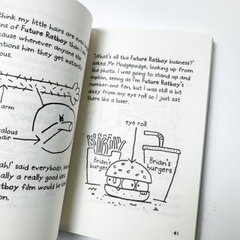 think my little hairs are ev
ns of Future Ratboy
because whenever anyone els
entions him they get instantly
arm
ealous
hair
ah!' said everybody, bec
ally a really good idea
atboy film would be th
'What's all this Future Ratboy business?'
asked Mr Hodgepodge, looking up from
the photo. I was going to stand up and
explain, seeing as I'm Future Ratboy's
number-one fan, but I was still a bit
dizzy from my eye roll so I just sat
there like a loser.
eye roll
Brian's
burgers
Brian's
burgers
41